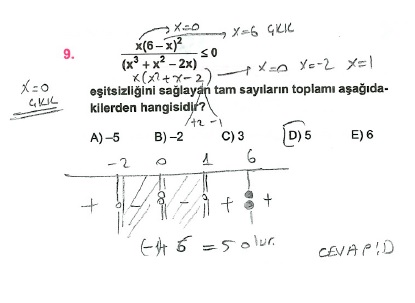 x=0
x=6 ÇKK
9. x(6 – x)² / (x³ + x² – 2x) ≤ 0
x(x²+x-2) → x=0 x=-2 x=1
x=0
ÇKK
eşitsizliğini sağlayan tam sayıların toplamı aşağıda-
kilerden hangisidir?
+2 -1
A) –5 B) –2 C) 3 D) 5 E) 6
-2 0 1 6
+ - - + +
= 5 olur.
CEVAP: D